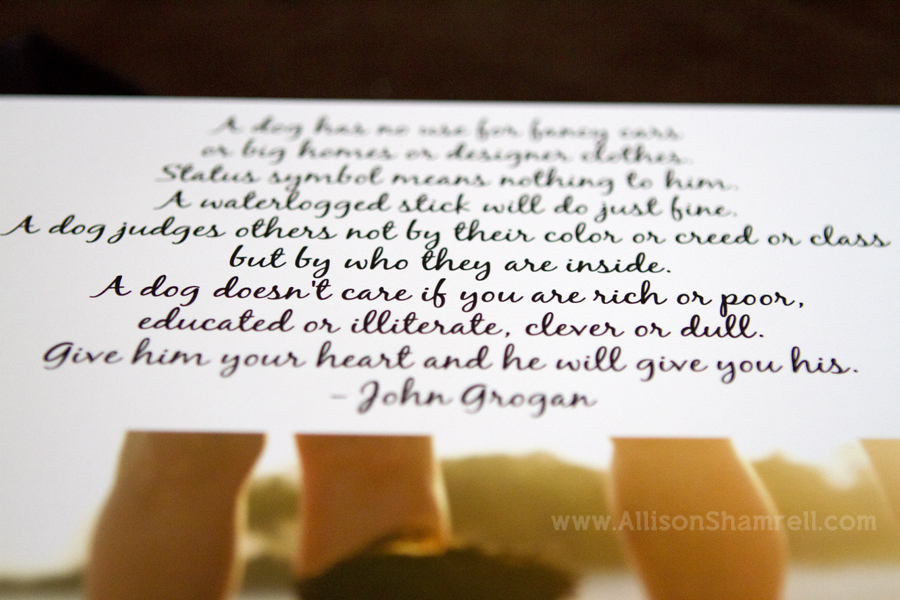 A dog has no use for fancy cars
or big homes or designer clothes.
Status symbol means nothing to him.
A waterlogged stick will do just fine.
A dog judges others not by their color or creed or class
but by who they are inside.
A dog doesn't care if you are rich or poor,
educated or illiterate, clever or dull.
Give him your heart and he will give you his.
- John Grogan
www.AllisonShamrell.com